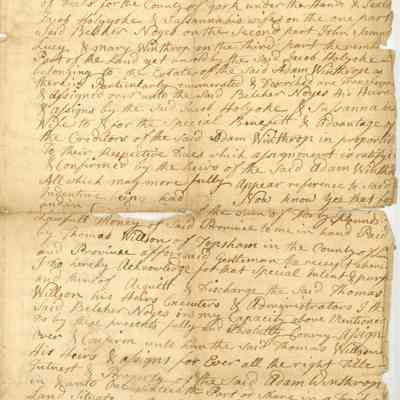 of Deeds for the County of York under the Hands & Seals
Jacob Holyoke & Susannah his wife on the one part
Said Belcher Noyes on the Second part John Summ
Lucy & Mary Winthrop on the third part the remain
Part of the Land yet unsold by the Said Jacob Holyoke
belonging to the Estate of the Said Adam Winthrop as
therein Particularly enumerated & Described are
& Assigned over to the Said Belcher Noyes His Heirs
& Assigns by the Said Jacob Holyoke & Susanna his
Wife to & for the Special Benefit & Advantage of
the Creditors of the Said Adam Winthrop in proportion
to their Respective Dues which assignment is ratify'd
& Confirmed by the heirs of the Said Adam Winth
All which may more fully Appear reference to Said
Indenture being had Now know yee that
Sum of Forty Pounds
Lawfull Money of Said Province to me in hand Paid
by Thomas Willson of Topsham in the County of
and Province aforesaid Gentleman the receipt whereof
I Do hereby Acknowledge for that Special Intent & purp
and thereof Acquitt & Discharge the Said Thomas
Willson his Heirs Executers & Administrators I the
Said Belcher Noyes in my Capacity above Mentioned
Do by these presents fully and Absolutly Convey Assign
Over & Confirm unto him the Said Thomas Willson
His Heirs & Assigns for Ever all the right Title
Interest & Property of the Said Adam Winthrop
in & unto One Sixteenth Part or Share in a
Land Situate